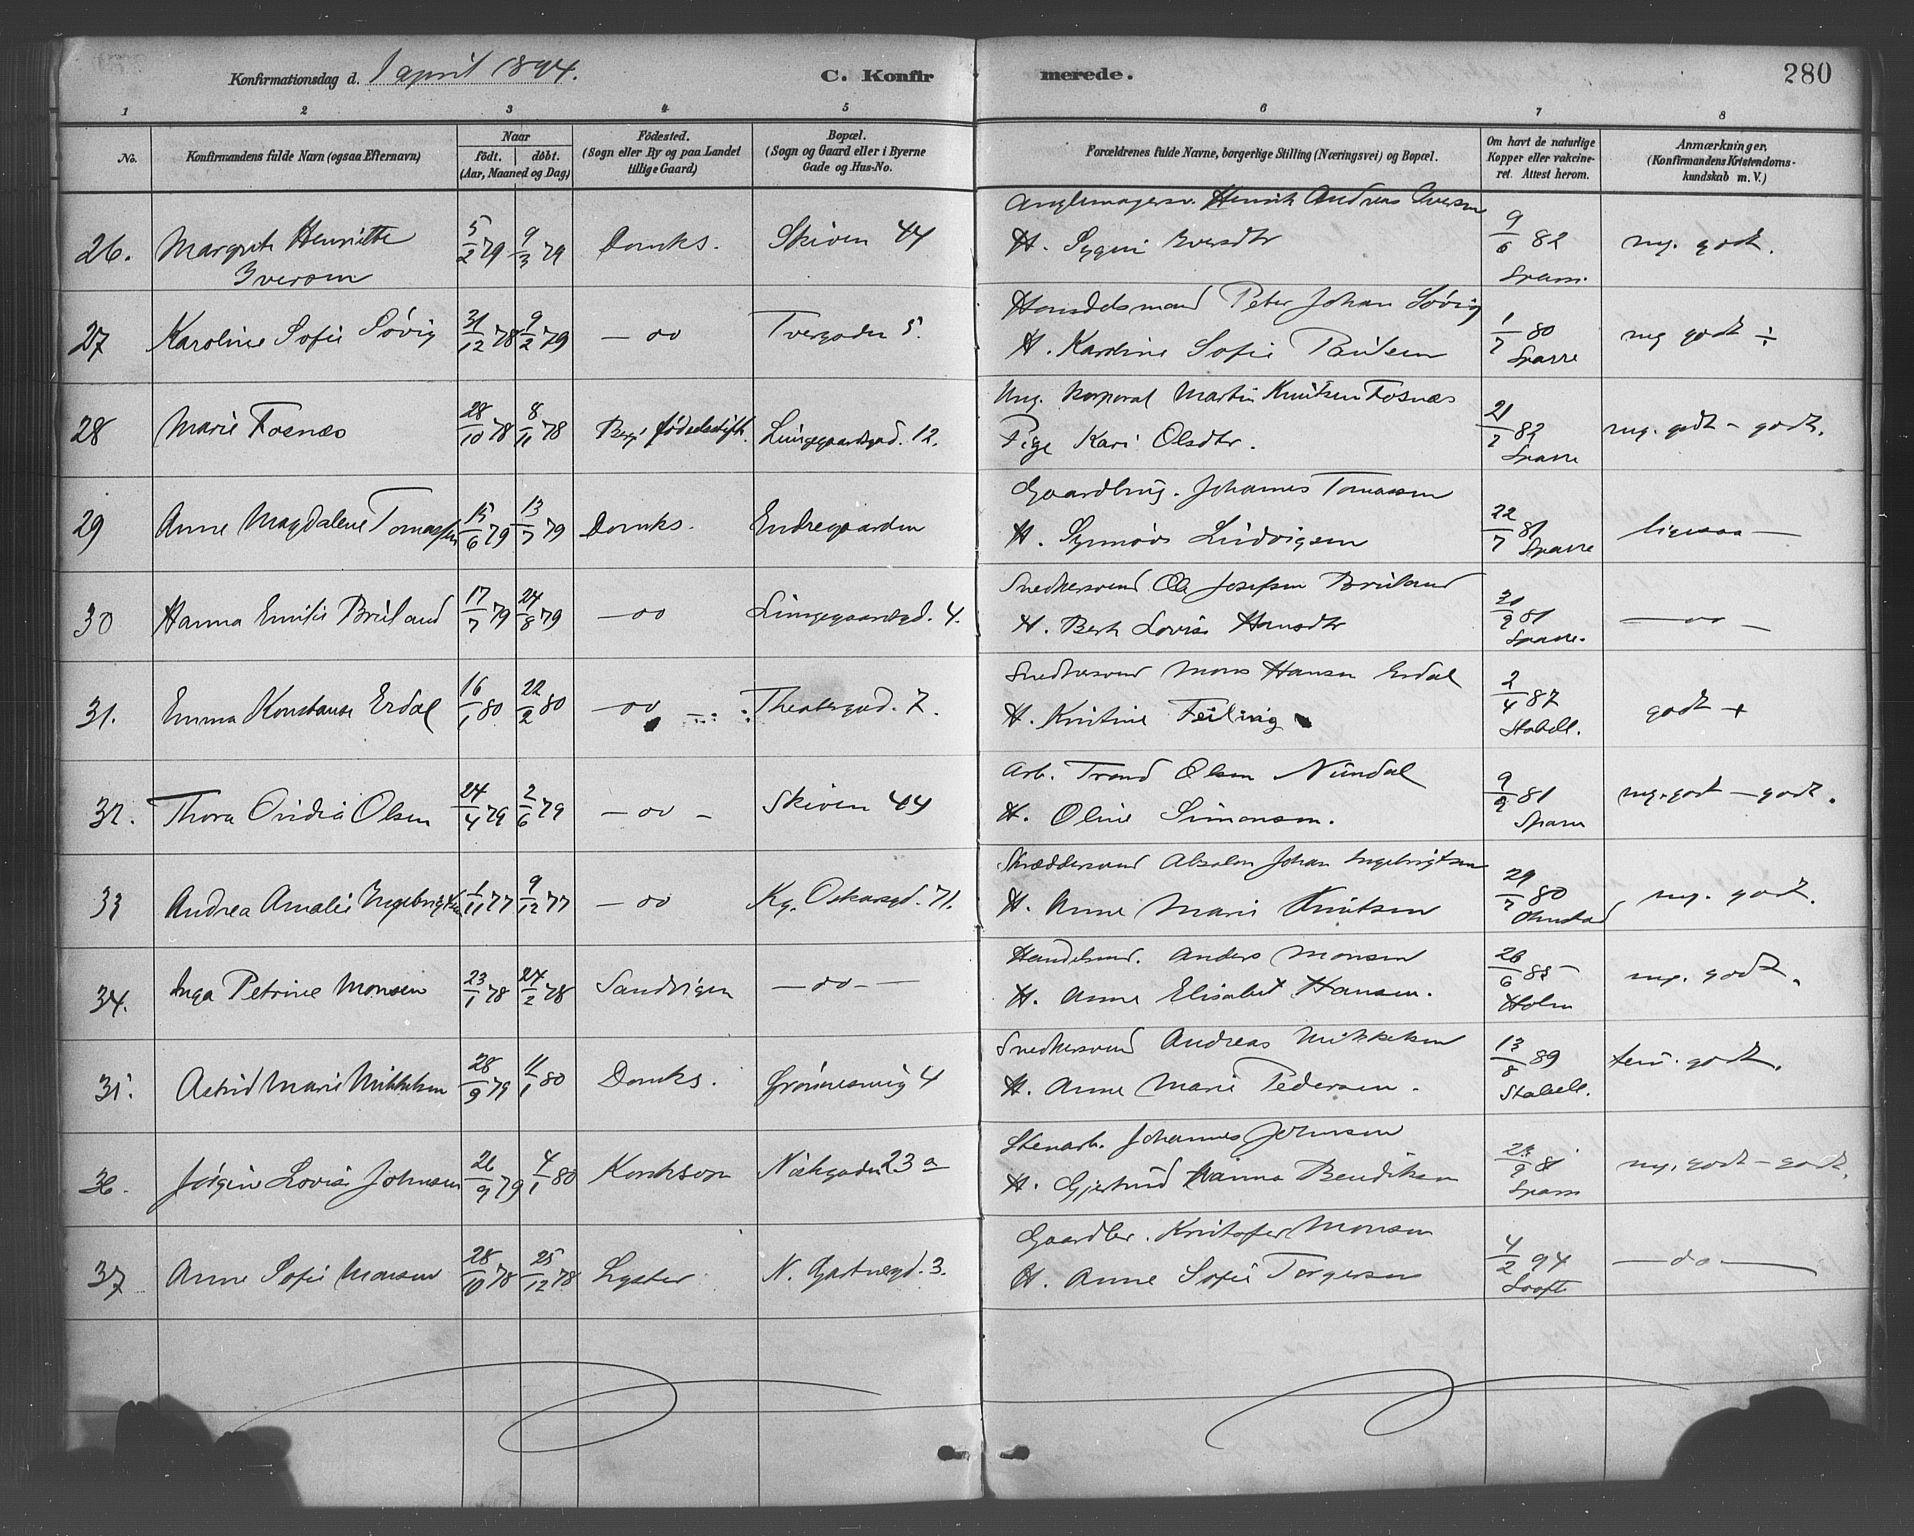 Konfirmationsdag d. 1 april 1894.
C. Konfirmerede.
280
1 2 3 4 5 6 7 8
No.
Konfirmandens fulde Navn (ogsaa Efternavn)
Naar
født. døbt.
(Aar, Maaned og Dag)
Fødested.
(Sogn eller By og paa Landet
tillige Gaard)
Bopæl.
(Sogn og Gaard eller i Byerne
Gade og Hus-No.
Forældrenes fulde Navne, borgerlige Stilling (Næringsvei) og Bopæl.
Om havt de naturlige
Kopper eller vakcine-
ret. Attest herom.
Anmærkninger,
(Konfirmandens Kristendoms-
kundskab m. V.)
26. Margrete Henriette Iversen 5/2 79 9/3 79 Domks. Skiven 44
Henrik Andreas Iversen
H. Iversdtr 9/6 82 Sparre mg. godt.
27 Karoline Sofie Løvig 31/12 78 9/2 79 — oo Tvergaden 5.
Handelsmand Peter Johan Løvig
H. Karoline Sofie Paulsen 1/7 80 Sparre mg godt ÷
28 Marie Fosnæs 28/10 78 8/11 78 Berg. fødselsstift. Lungegaardsgd. 12.
Ung. Korporal Martin Knutsen Fosnæs
Pige Kari Olsdtr. 21/7 82 Sparre mg. godt - godt.
29 Anne Magdalene Tomassen 15/6 79 13/7 79 Domks. Endregaarden
Gaardbrug. Johannes Tomassen
H. Synnøve Ludvigsen 22/7 81 Sparre ligesaa —
30 Hanna Emilie Bruland 17/7 79 24/8 79 — oo Lungegaardsgd. 4.
Snedkersvend Ole Josefsen Bruland
H. Berte Lovise Hansdtr 81 Sparre. — oo —
31. Emma Konstanse Erdal 16/1 80 22/2 80 — oo Theatergad. 7.
Snedkersvend Mons Hansen Erdal
H. Kristine Feilung 2/4 87 Stabell. godt +
32. Thora Ovidia Olsen 24/4 79 2/6 79 — oo — Skiven 44
Arb. Trond Olsen Nundal
H. Oline Simonsen. 9/9 81 Sparre mg. godt — godt.
33 Andrea Amalie Ingebrigtsen 1/11 77 9/12 77 — oo Kg. Oskarsgd. 71.
Skræddersvend Absalon Johan Ingebrigtsen
H. Anne Marie Knutsen 29/7 80 mg. godt.
34. Inga Petrine Monsen 23/1 78 24/2 78 Sandvigen — oo —
Handelsmd. Anders Monsen
H. Anne Elisabet Hansen. 26/6 85 Holm mg. godt.
35. Astrid Marie Mikkelsen 28/9 79 11/1 80 Domks. Grønnevig 4
Snedkersvend Andreas Mikkelsen
H. Anne Marie Pedersen. 13/8 89 Stabell. tem. godt.
36. Jørgine Lovise Johnsen 26/9 79 4/1 80 Korsksogn 23 a
Stenarb. Johannes Johnsen
H. Gjertrud Hanna Bendiksen 81 Sparre mg. godt — godt.
37 Anne Sofie Monsen 28/10 78 25/12 78 Lyster N. 3.
Gaardbr. Kristofer Monsen
H. Anne Sofie Torgersen 4/2 94 — oo —